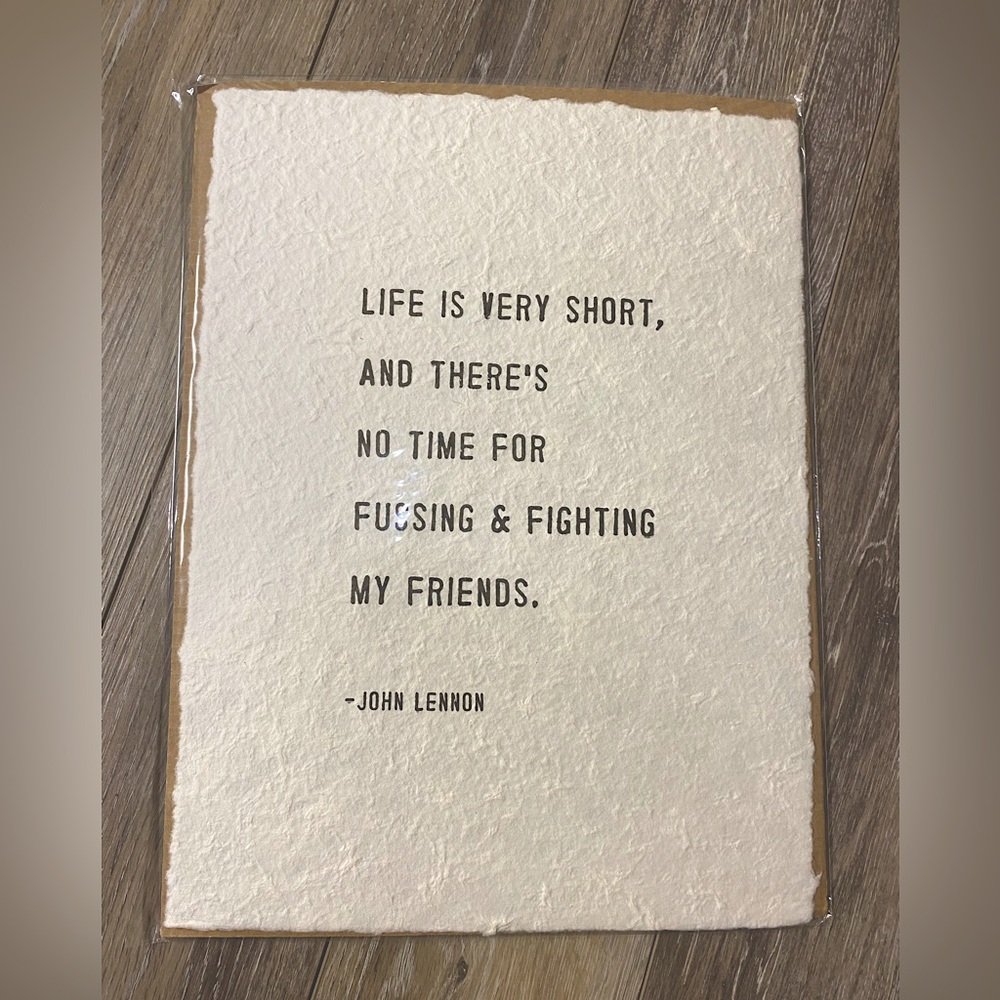 LIFE IS VERY SHORT,
AND THERE'S
NO TIME FOR
FUSSING & FIGHTING
MY FRIENDS.
-JOHN LENNON